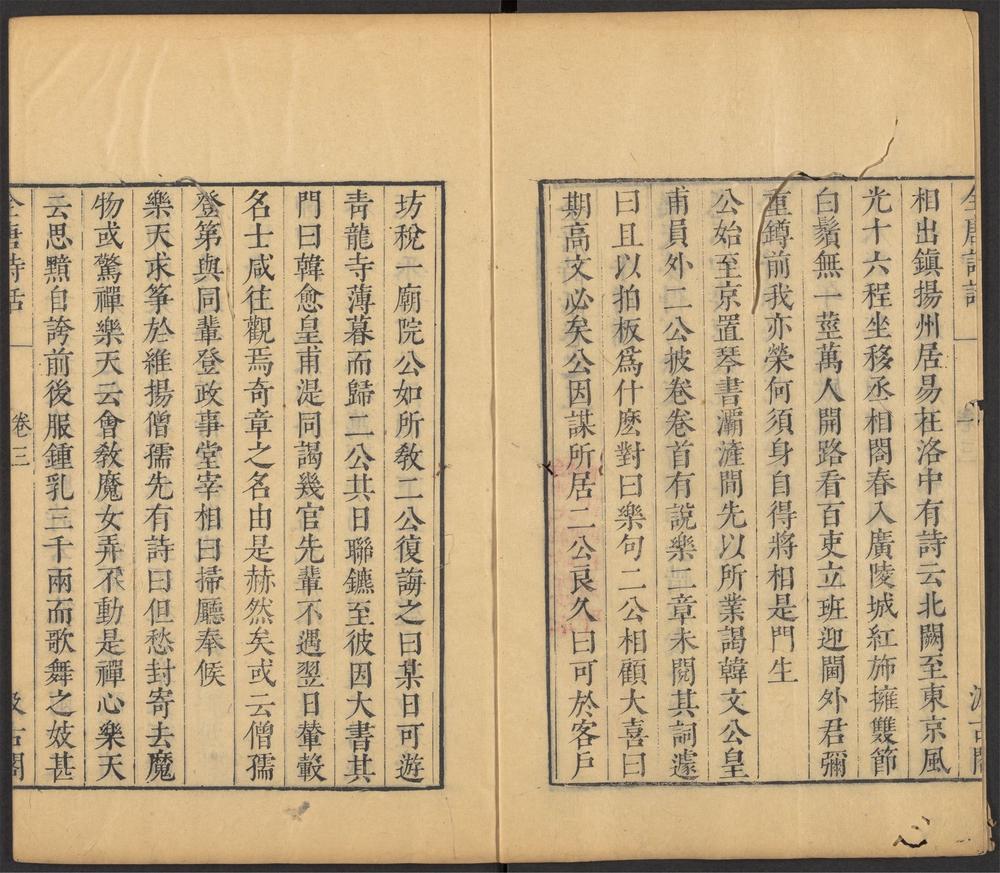 全唐詩話
相出鎮揚州居易在洛中有詩云北闕至東京風
光十六程坐移丞相閤春入廣陵城紅旆擁雙節
白鬚無一莖萬人開路看百吏立班迎閫外君彌
重鐏前我亦榮何須身自得將相是門生
公始至京置琴書灞滻間先以所業謁韓文公皇
甫員外二公披卷卷首有說樂二章未閱其詞遽
曰且以拍板爲什麽對曰樂句二公相顧大喜曰
期高文必矣公因謀所居二公良久曰可於客戶
坊稅一廟院公如所敎二公復誨之曰某日可遊
靑龍寺薄暮而歸二公共日聯鑣至彼因大書其
門曰韓愈皇甫湜同謁幾官先輩不遇翌日輦轂
名士咸往觀焉奇章之名由是赫然矣或云僧孺
登第與同輩登政事堂宰相曰掃廳奉候
樂天求筝於維揚僧孺先有詩曰但愁封寄去魔
物或驚禪樂天云會敎魔女弄不動是禪心樂天
云思黯自誇前後服鍾乳三千兩而歌舞之妓甚
全唐詩話 卷三 汲古閣